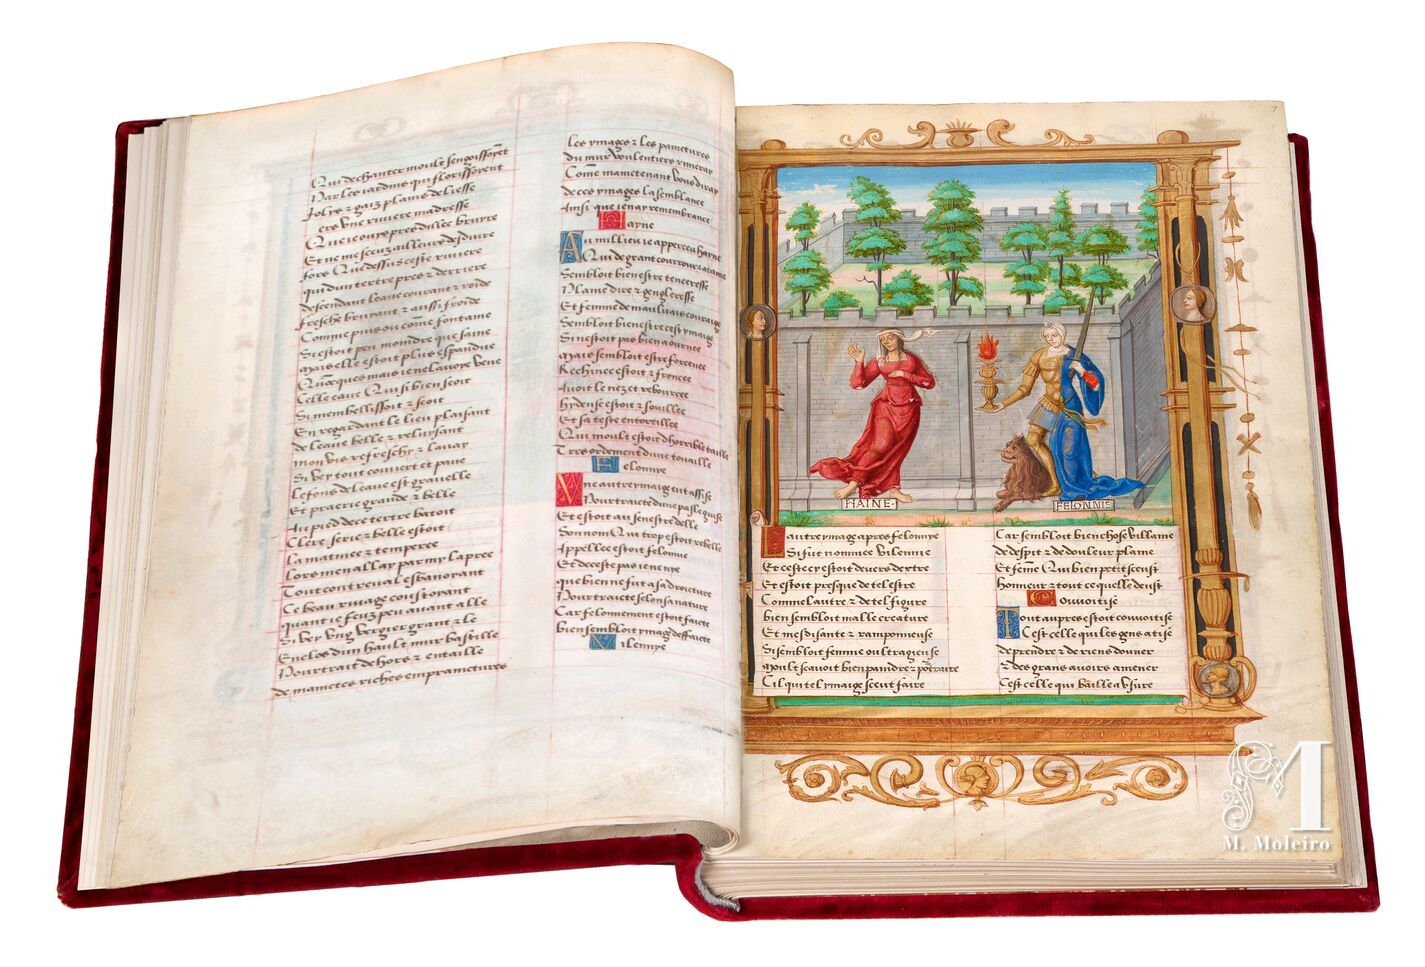 Qui de chanter moult sengoissoyẽt
Par les iardins qui florissoyent
Jolys z gaiz plains de liesse
vers Une riviere madresse
Que ie ouys pres dillec bruyre
Et ne me sceuz ailleurs deduire
fors Que dessus ceste riviere
qui dun tertre pres z derriere
descendant leaue courant z roide
fresche bruyant z aussi froide
Comme puis ou cõme fontaine
Si estoit peu mondre que saine
mais elle estoit plus espandue
Quõcques mais ie nel avoye veue
Celle eaue Qui si bien seoit
Si membellissoit z seoit
En regardant le lieu plaisant
de leaue belle z reluisant
mon vis refreschy z lavay
Si vey tout couvert et pave
Le fons de leaue est gravelle
Et praerie grande z belle
Au pied de ce tertre batoit
Clere serie z belle estoit
La matinee z temperee
Lors men allay parmy la pree
Tout contreval esbanoyant
Ce beau rivage coustoyant
quant ie feuz peu avant alle
Si vey ung vergier grant z le
Enclos dun hault mur bastille
Pourtrait dehors z entaille
de maintes riches empraintures
Les ymages z les painctures
du mur voulentiers remiray
Cõme maintenant vous diray
de ces ymages la semblance
Ainsi que ien ay remembrance
Hayne
Au millieu ie apperceu hayne
Qui de grant courroux z ataine
Sembloit bien estre tenceresse
Plaine dire z gengleresse
Et femme de maulvais couraige
Sembloit bien estre cest ymaige
Si nestoit pas bien aournee
Mais sembloit estre forcenee
Rechinee estoit z froncee
Avoit le nez et rebourcee
hydeuse estoit z souillee
Et sa teste entortillee
Qui moult estoit dhorrible taille
Tres ordement dune touaille
Felonnye
Une autre ymaige ent assise
Pourtraicte dune palle guise
Et estoit au senestre delle
Son nom Qui trop estoit rebelle
Appellee estoit felonnie
Et de ceste pas ie ne nye
que bien ne fut a sa droicture
Pourtraicte selon sa nature
Car felonnement estoit faicte
bien sembloit ymage deffaicte
Vilennye
7
HAINE·
FELONNIE
Lautre ymage apres felonnye
Si fut nommee vilennie
Et ceste cy estoit devers dextre
Et estoit presque de tel estre
Comme lautre z de tel figure
bien sembloit malle creature
Et mesdisante z ramponneuse
Si sembloit femme oultrageuse
Moult scavoit bien paindre z põtraire
Cil qui tel ymaige sceut faire
Car sembloit bien chose villaine
de despit z de douleur plaine
Et fẽme Qui bien petit sceust
Honneur z tout ce quelle deust
Convoitise
Tout aupres estoit convoitise
Cest celle qui les gens atise
de prendre z de riens donner
z des grans avoirs amener
Cest celle qui baille a Usure
M
M. Moleiro